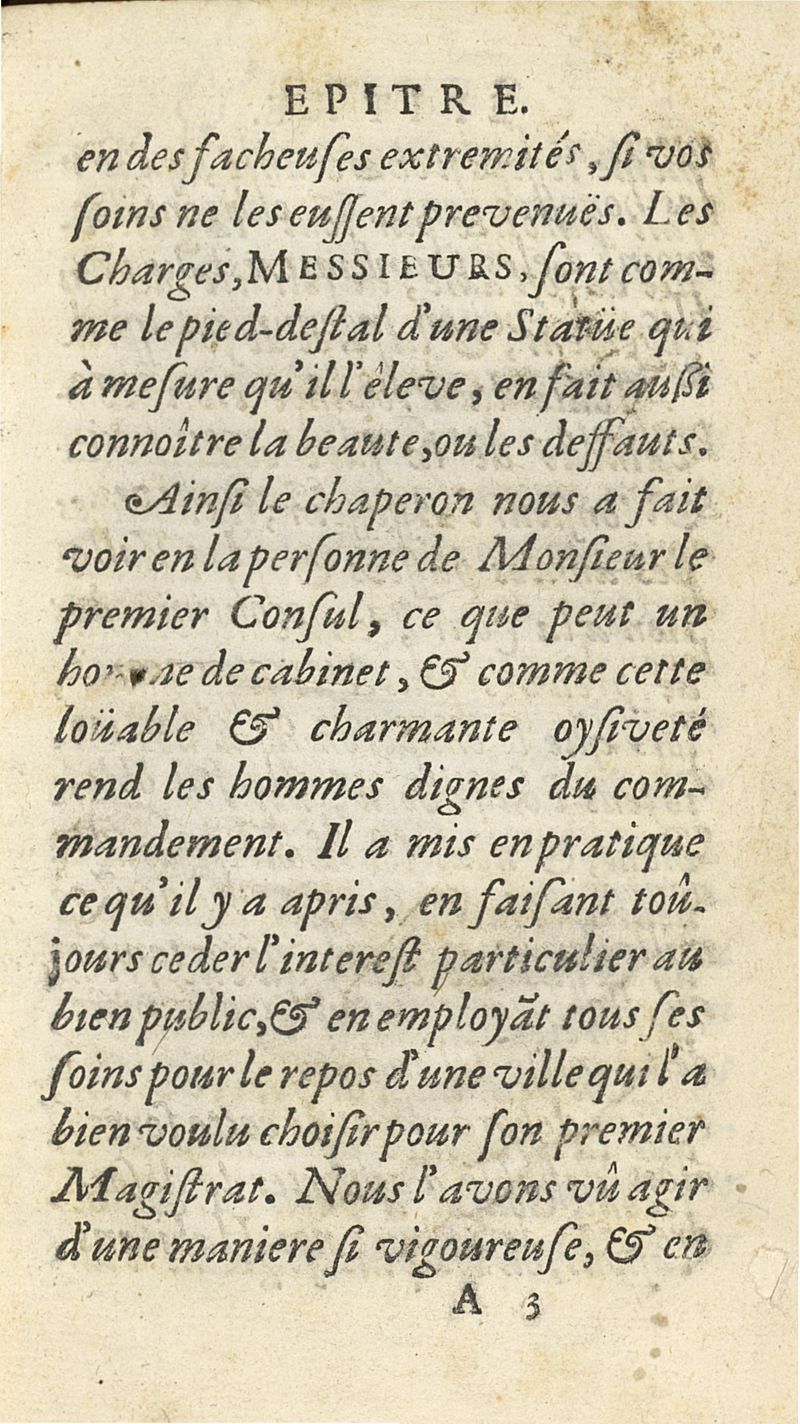 EPITRE.
en des facheuſes extremités, ſi vos
ſoins ne les euſſent prevenuës. Les
Charges, MESSIEURS, ſont com-
me le pied-deſtal d'une Statüe qui
à meſure qu'il l'éleve, en fait auſſi
connoître la beaute, ou les deffauts.
Ainſi le chaperon nous a fait
voir en la perſonne de Monſieur le
premier Conſul, ce que peut un
de cabinet, & comme cette
loüable & charmante oyſiveté
rend les hommes dignes du com-
mandement. Il a mis en pratique
ce qu'il y a apris, en faiſant toû-
jours ceder l'intereſt particulier au
bien public, & en employãt tous ſes
ſoins pour le repos d'une ville qui l'a
bien voulu choiſir pour ſon premier
Magiſtrat. Nous l'avons vû agir
d'une maniere ſi vigoureuſe, & en
A 3